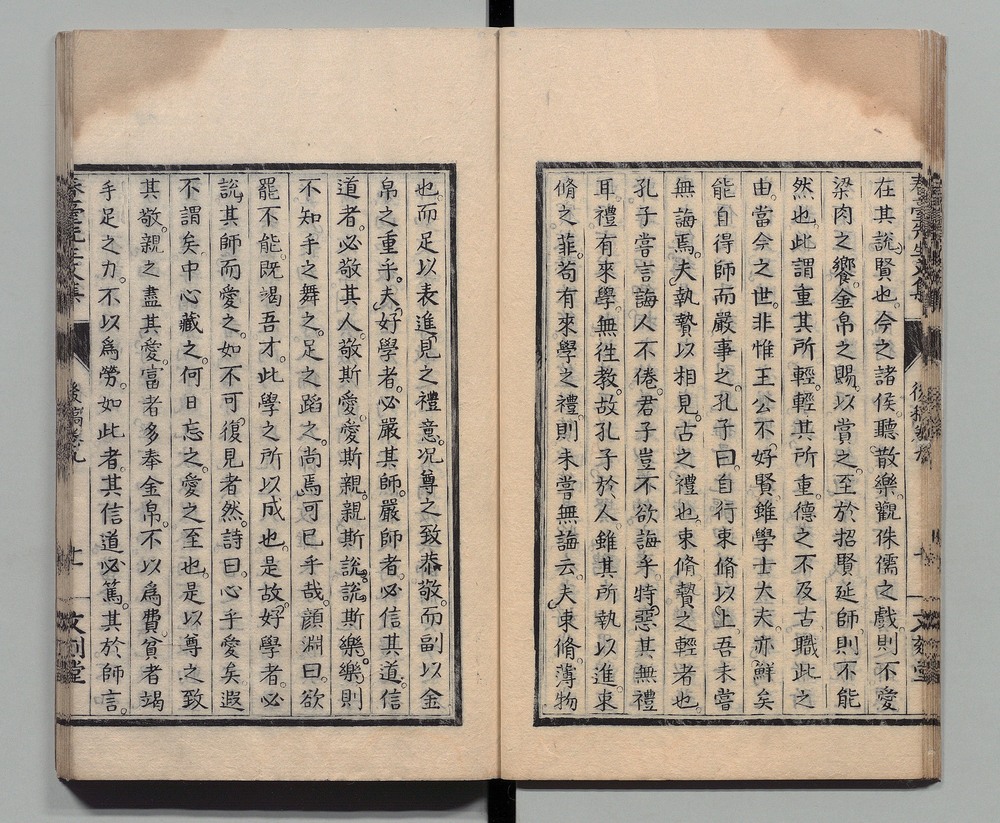 在其説賢也。今之諸侯。聽散樂觀侏儒之戲。則不愛
梁肉之饗。金帛之賜。以賞之。至於招賢延師。則不能
然也。此謂重其所輕。輕其所重。德之不及古。職此之
由。當今之世。非惟王公不好賢。雖學士大夫。亦鮮矣
能自得師而嚴事之。孔子曰。自行束脩以上。吾未嘗
無誨焉。夫執贄以相見。古之禮也。束脩贄之輕者也。
孔子嘗言誨人不倦。君子豈不欲誨乎。特惡其無禮
耳。禮有來學。無徃教。故孔子於人。雖其所執以進。束
脩之菲。苟有來學之禮。則未嘗無誨云。夫束脩薄物
也。而足以表進見之禮意。况尊之致恭敬。而副以金
帛之重乎。夫好學者。必嚴其師。嚴師者。必信其道。信
道者。必敬其人。敬斯愛。愛斯親。親斯説。説斯樂。樂則
不知手之舞之。足之蹈之。尚焉可已乎哉。顔淵曰。欲
罷不能。既竭吾才。此學之所以成也。是故好學者。必
説其師而愛之。如不可復見者然。詩曰。心乎愛矣。遐
不謂矣。中心藏之。何日忘之。愛之至也。是以尊之致
其敬。親之盡其愛。富者多奉金帛。不以爲費。貧者竭
手足之力。不以爲勞。如此者。其信道必篤。其於師言。
後稿卷九
十一
文刻堂